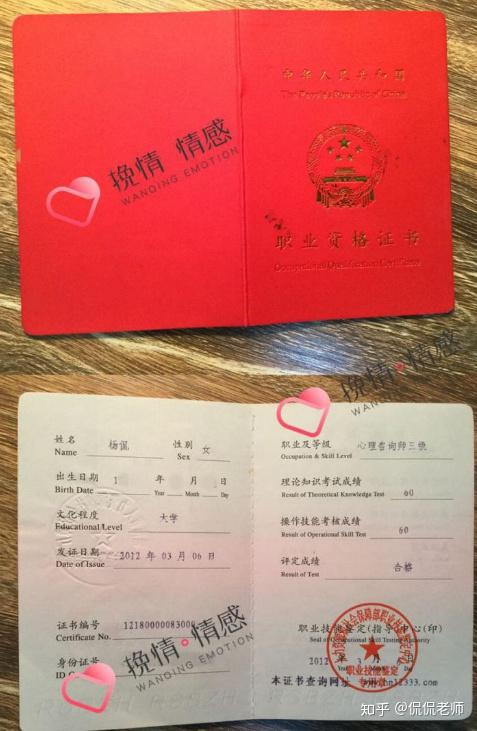 中华人民共和国
The People's Republic of China
挽情 情感
WANQING EMOTION
职业资格证书
Occupational Qualification Certificate
挽情 情感
WANQING EMOTION
姓名 杨侃 性别 女
Name Sex
出生日期 1 年 月 日
Birth Date Year Month Day
文化程度 大学
Educational Level
发证日期 2012 年 03 月 06 日
Date of Issue
证书编号 12180000083000
Certificate No.
身份证号
ID
职业及等级 心理咨询师三级
Occupation & Skill Level
理论知识考试成绩 60
Result of Theoretical Knowledge Test
操作技能考核成绩 60
Result of Operational Skill Test
评定成绩 合格
Result of Test
职业技能鉴定(指导)中心(印)
Seal of Occupational Skill Testing Authority
2012 年 3 月
职业技能鉴定
专用章
本证书查询网址
挽情 情感
WANQING EMOTION
知乎 @侃侃老师